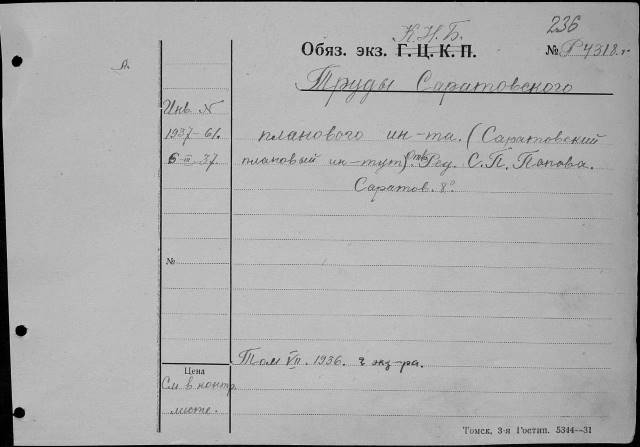 236
К.Н.Б.
Обяз. экз. Г. Ц. К. П. № Р 4318.г
Труды Саратовского
Инв N
1937-61.
6 III 37.
планового ин-та. (Саратовский
плановый ин-тут) Отв. Ред. С. П. Попова.
Саратов. 8°
№
Том VII. 1936. 2 экз-ра.
Цена
См в контр.
листе.
Томск, 3-я Гостип. 5344—31